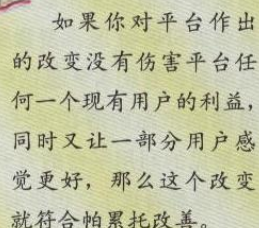 如果你对平台作出
的改变没有伤害平台任
何一个现有用户的利益，
同时又让一部分用户感
觉更好，那么这个改变
就符合帕累托改善。